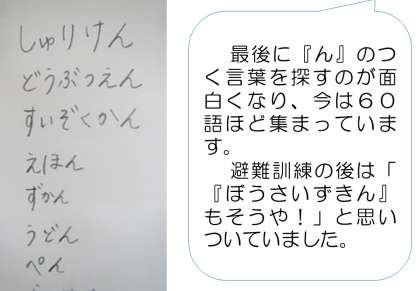 しゅりけん
どうぶつえん
すいぞくかん
えほん
ずかん
うどん
ぺん
最後に『ん』のつ
く言葉を探すのが面
白くなり、今は６０
語ほど集まっていま
す。
避難訓練の後は「
『ぼうさいずきん』
もそうや！」と思い
ついていました。